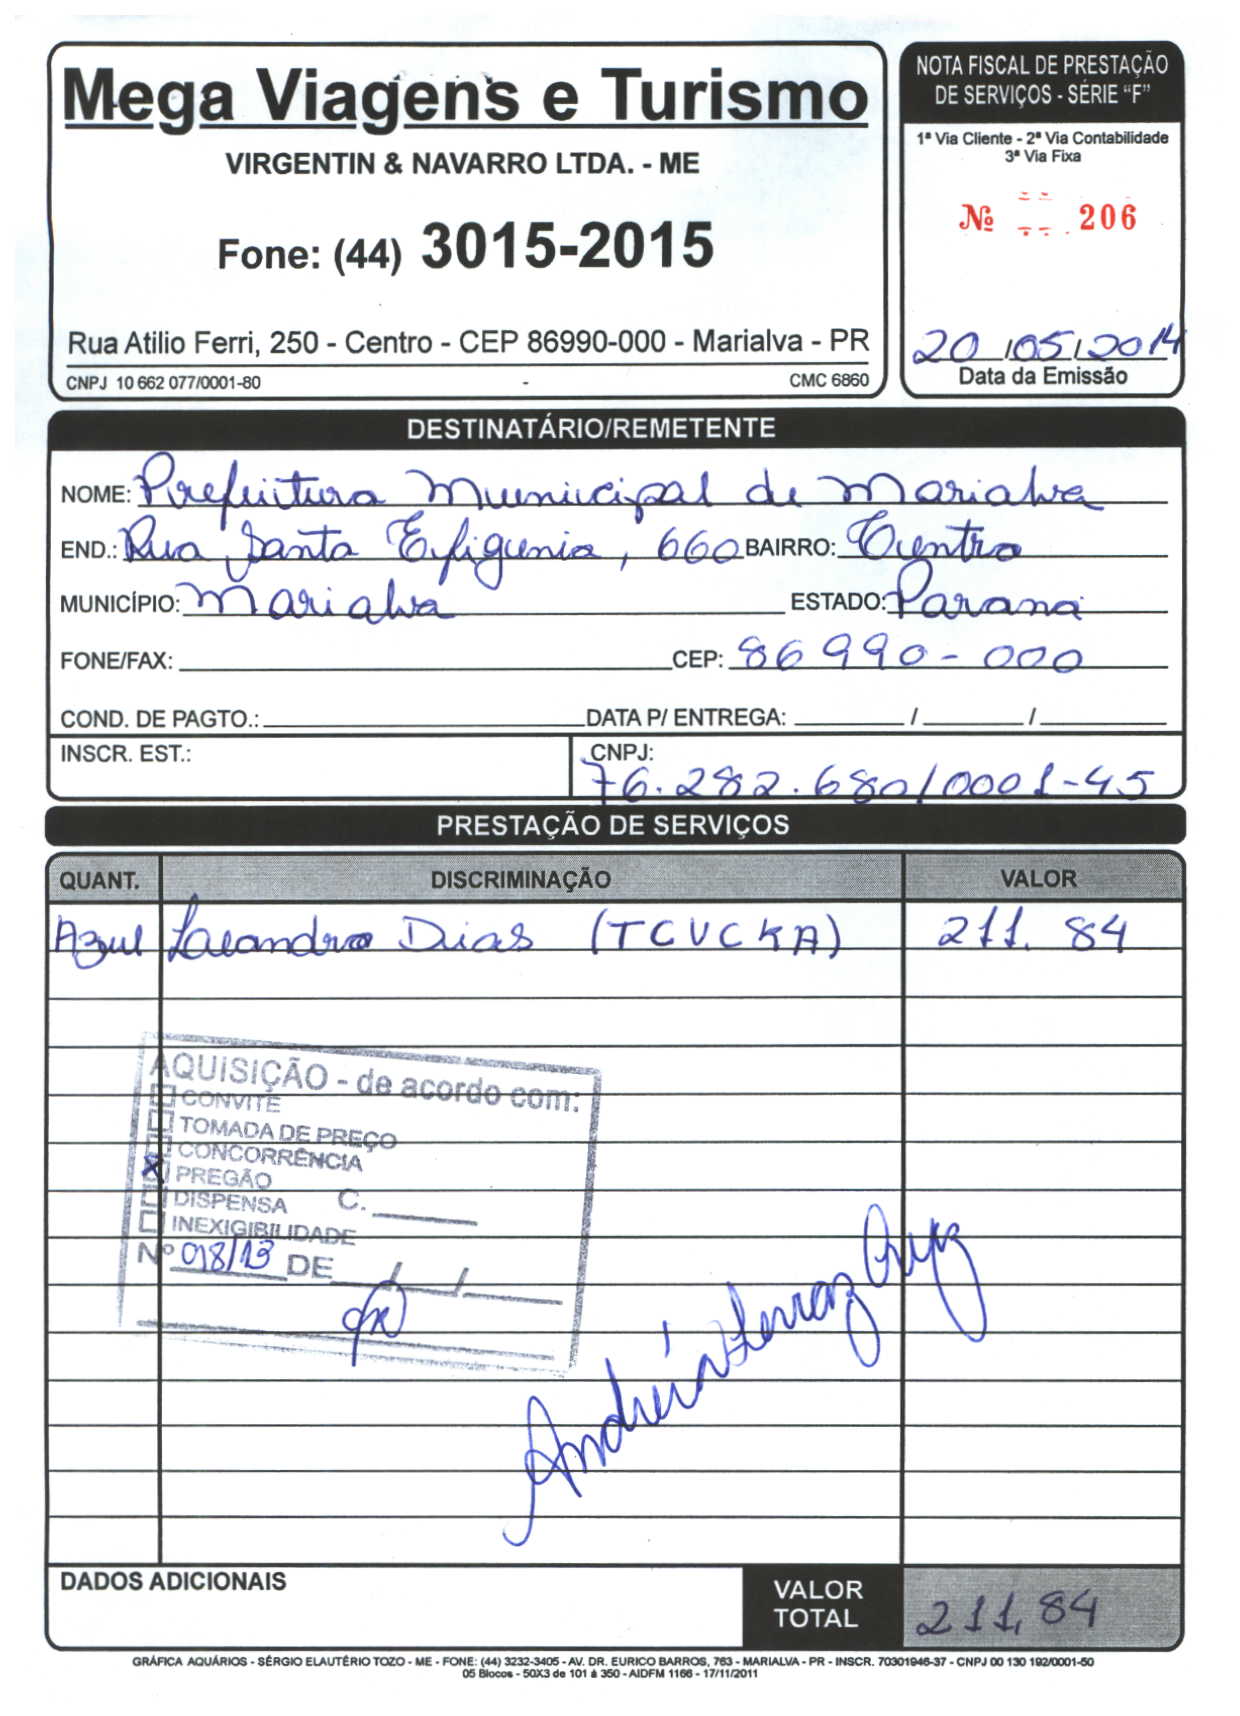 Mega Viagens e Turismo
VIRGENTIN & NAVARRO LTDA. - ME
Fone: (44) 3015-2015
Rua Atilio Ferri, 250 - Centro - CEP 86990-000 - Marialva - PR
CNPJ 10 662 077/0001-80 CMC 6860
NOTA FISCAL DE PRESTAÇÃO
DE SERVIÇOS - SÉRIE "F"
1ª Via Cliente - 2ª Via Contabilidade
3ª Via Fixa
Nº 206
20/05/2014
Data da Emissão
DESTINATÁRIO/REMETENTE
NOME: Prefeitura Municipal de Marialva
END.: Rua Santa Efigenia, 660 BAIRRO: Centro
MUNICÍPIO: Marialva ESTADO: Paraná
FONE/FAX: CEP: 86990-000
COND. DE PAGTO.: DATA P/ ENTREGA: / /
INSCR. EST.: CNPJ:
76.282.680/0001-45
PRESTAÇÃO DE SERVIÇOS
QUANT. DISCRIMINAÇÃO VALOR
Azul Leandro Dias (TCVCKA) 211.84
AQUISIÇÃO - de acordo com:
CONVITE
TOMADA DE PREÇO
CONCORRÊNCIA
X PREGÃO
DISPENSA C.
INEXIGIBILIDADE
Nº 018/13 DE / /
Andréia Ferraz
DADOS ADICIONAIS
VALOR
TOTAL 211,84
GRÁFICA AQUÁRIOS - SÉRGIO ELAUTÉRIO TOZO - ME - FONE: (44) 3232-3405 - AV. DR. EURICO BARROS, 763 - MARIALVA - PR - INSCR. 70301946-37 - CNPJ 00 130 192/0001-50
05 Blocos - 50X3 de 101 à 350 - AIDFM 1166 - 17/11/2011